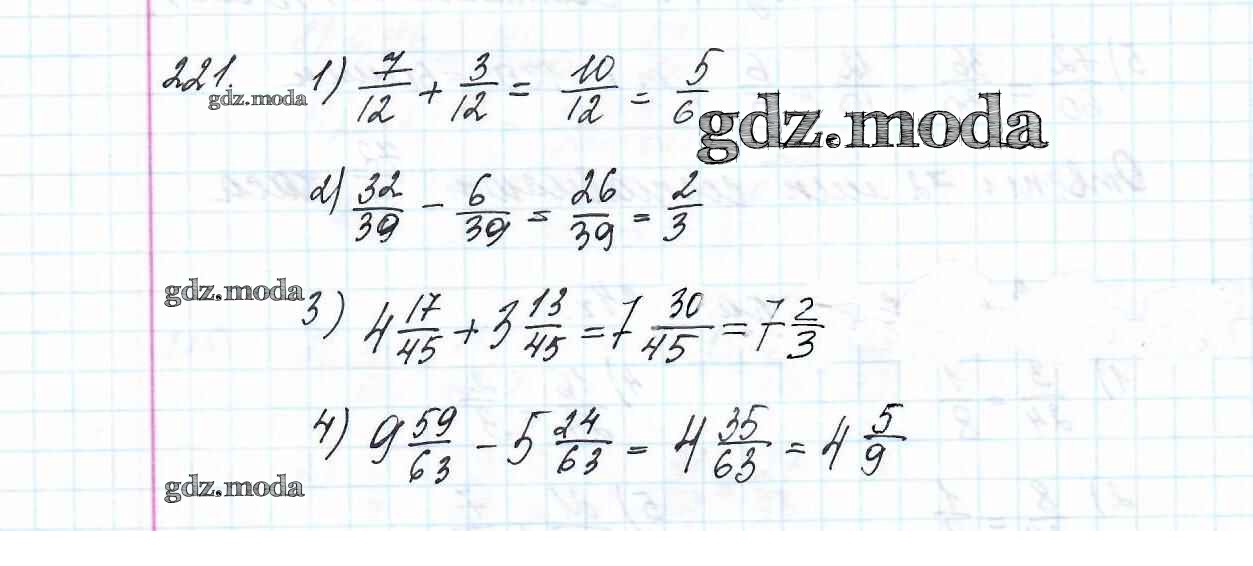 221. 1) 7/12 + 3/12 = 10/12 = 5/6
gdz.moda
gdz.moda
2) 32/39 - 6/39 = 26/39 = 2/3
gdz.moda
3) 4 17/45 + 3 13/45 = 7 30/45 = 7 2/3
4) 9 59/63 - 5 24/63 = 4 35/63 = 4 5/9
gdz.moda